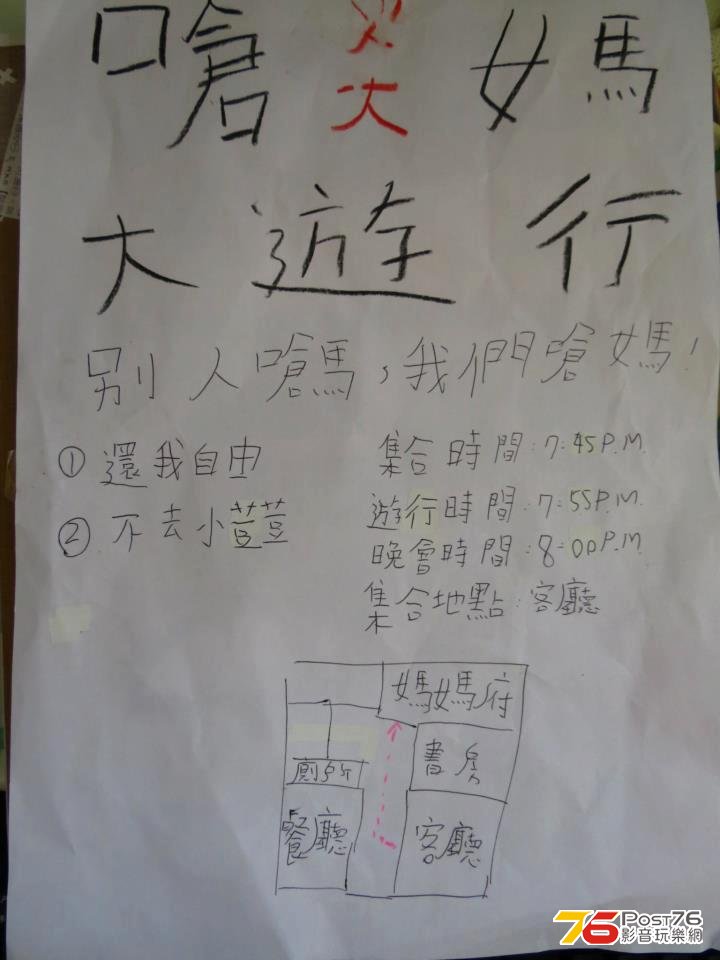 嗆火大媽
大遊行
別人嗆馬,我們嗆媽!
① 還我自由
② 不去小荳荳
集合時間:7:45P.M.
遊行時間:7:55P.M.
晚會時間:8:00P.M.
集合地點:客廳
媽媽府
書房
廁所
餐廳
客廳
76 POST76
影音玩樂網